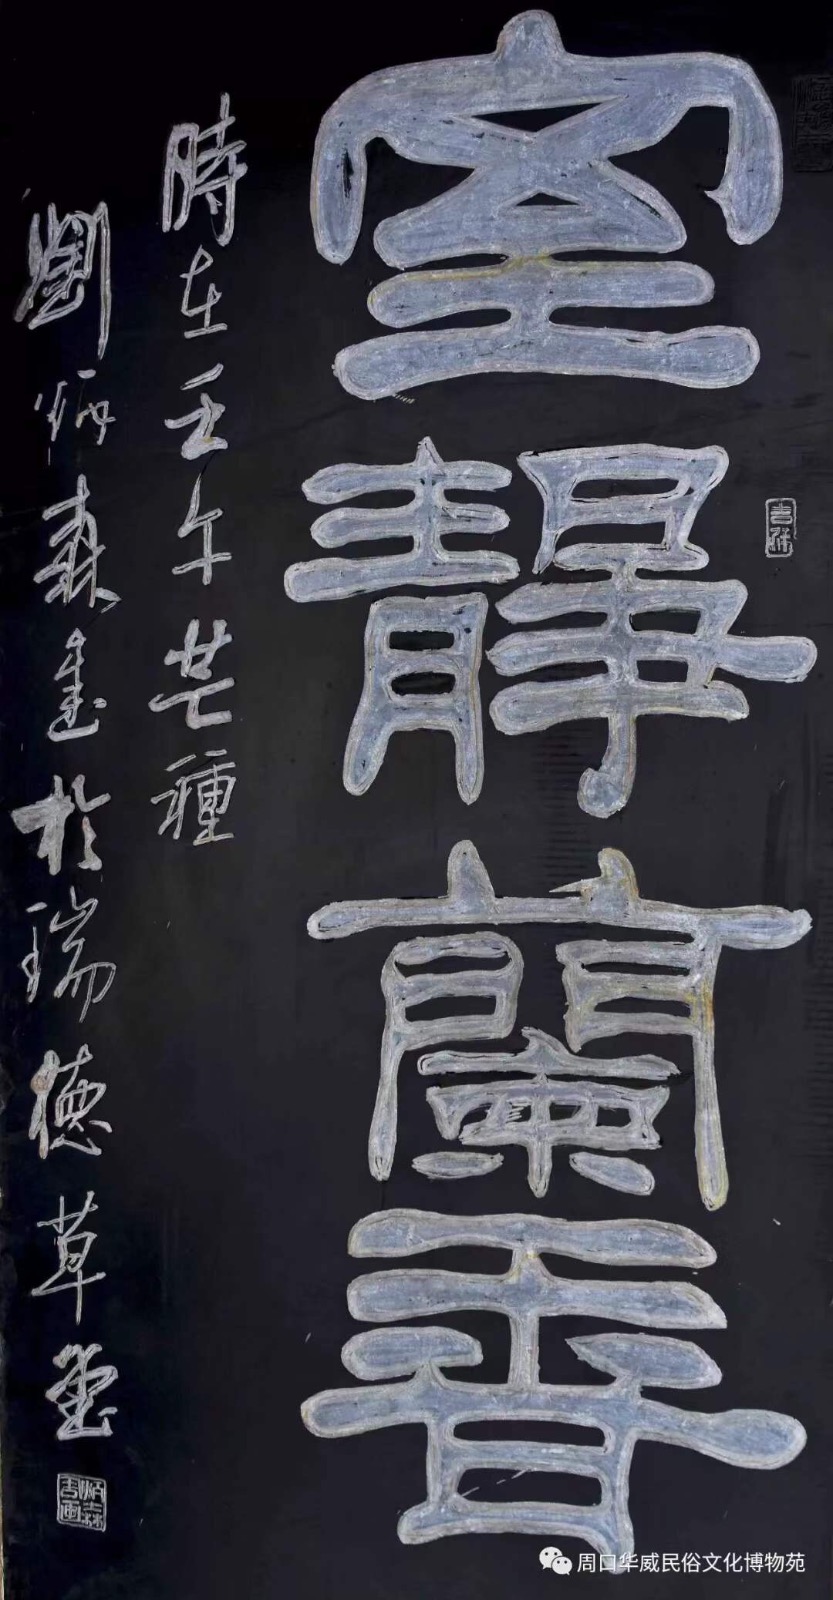 室靜蘭香
吉祥
時在壬午芒種
劉炳森書於瑞德草堂
炳森書画
周口华威民俗文化博物苑